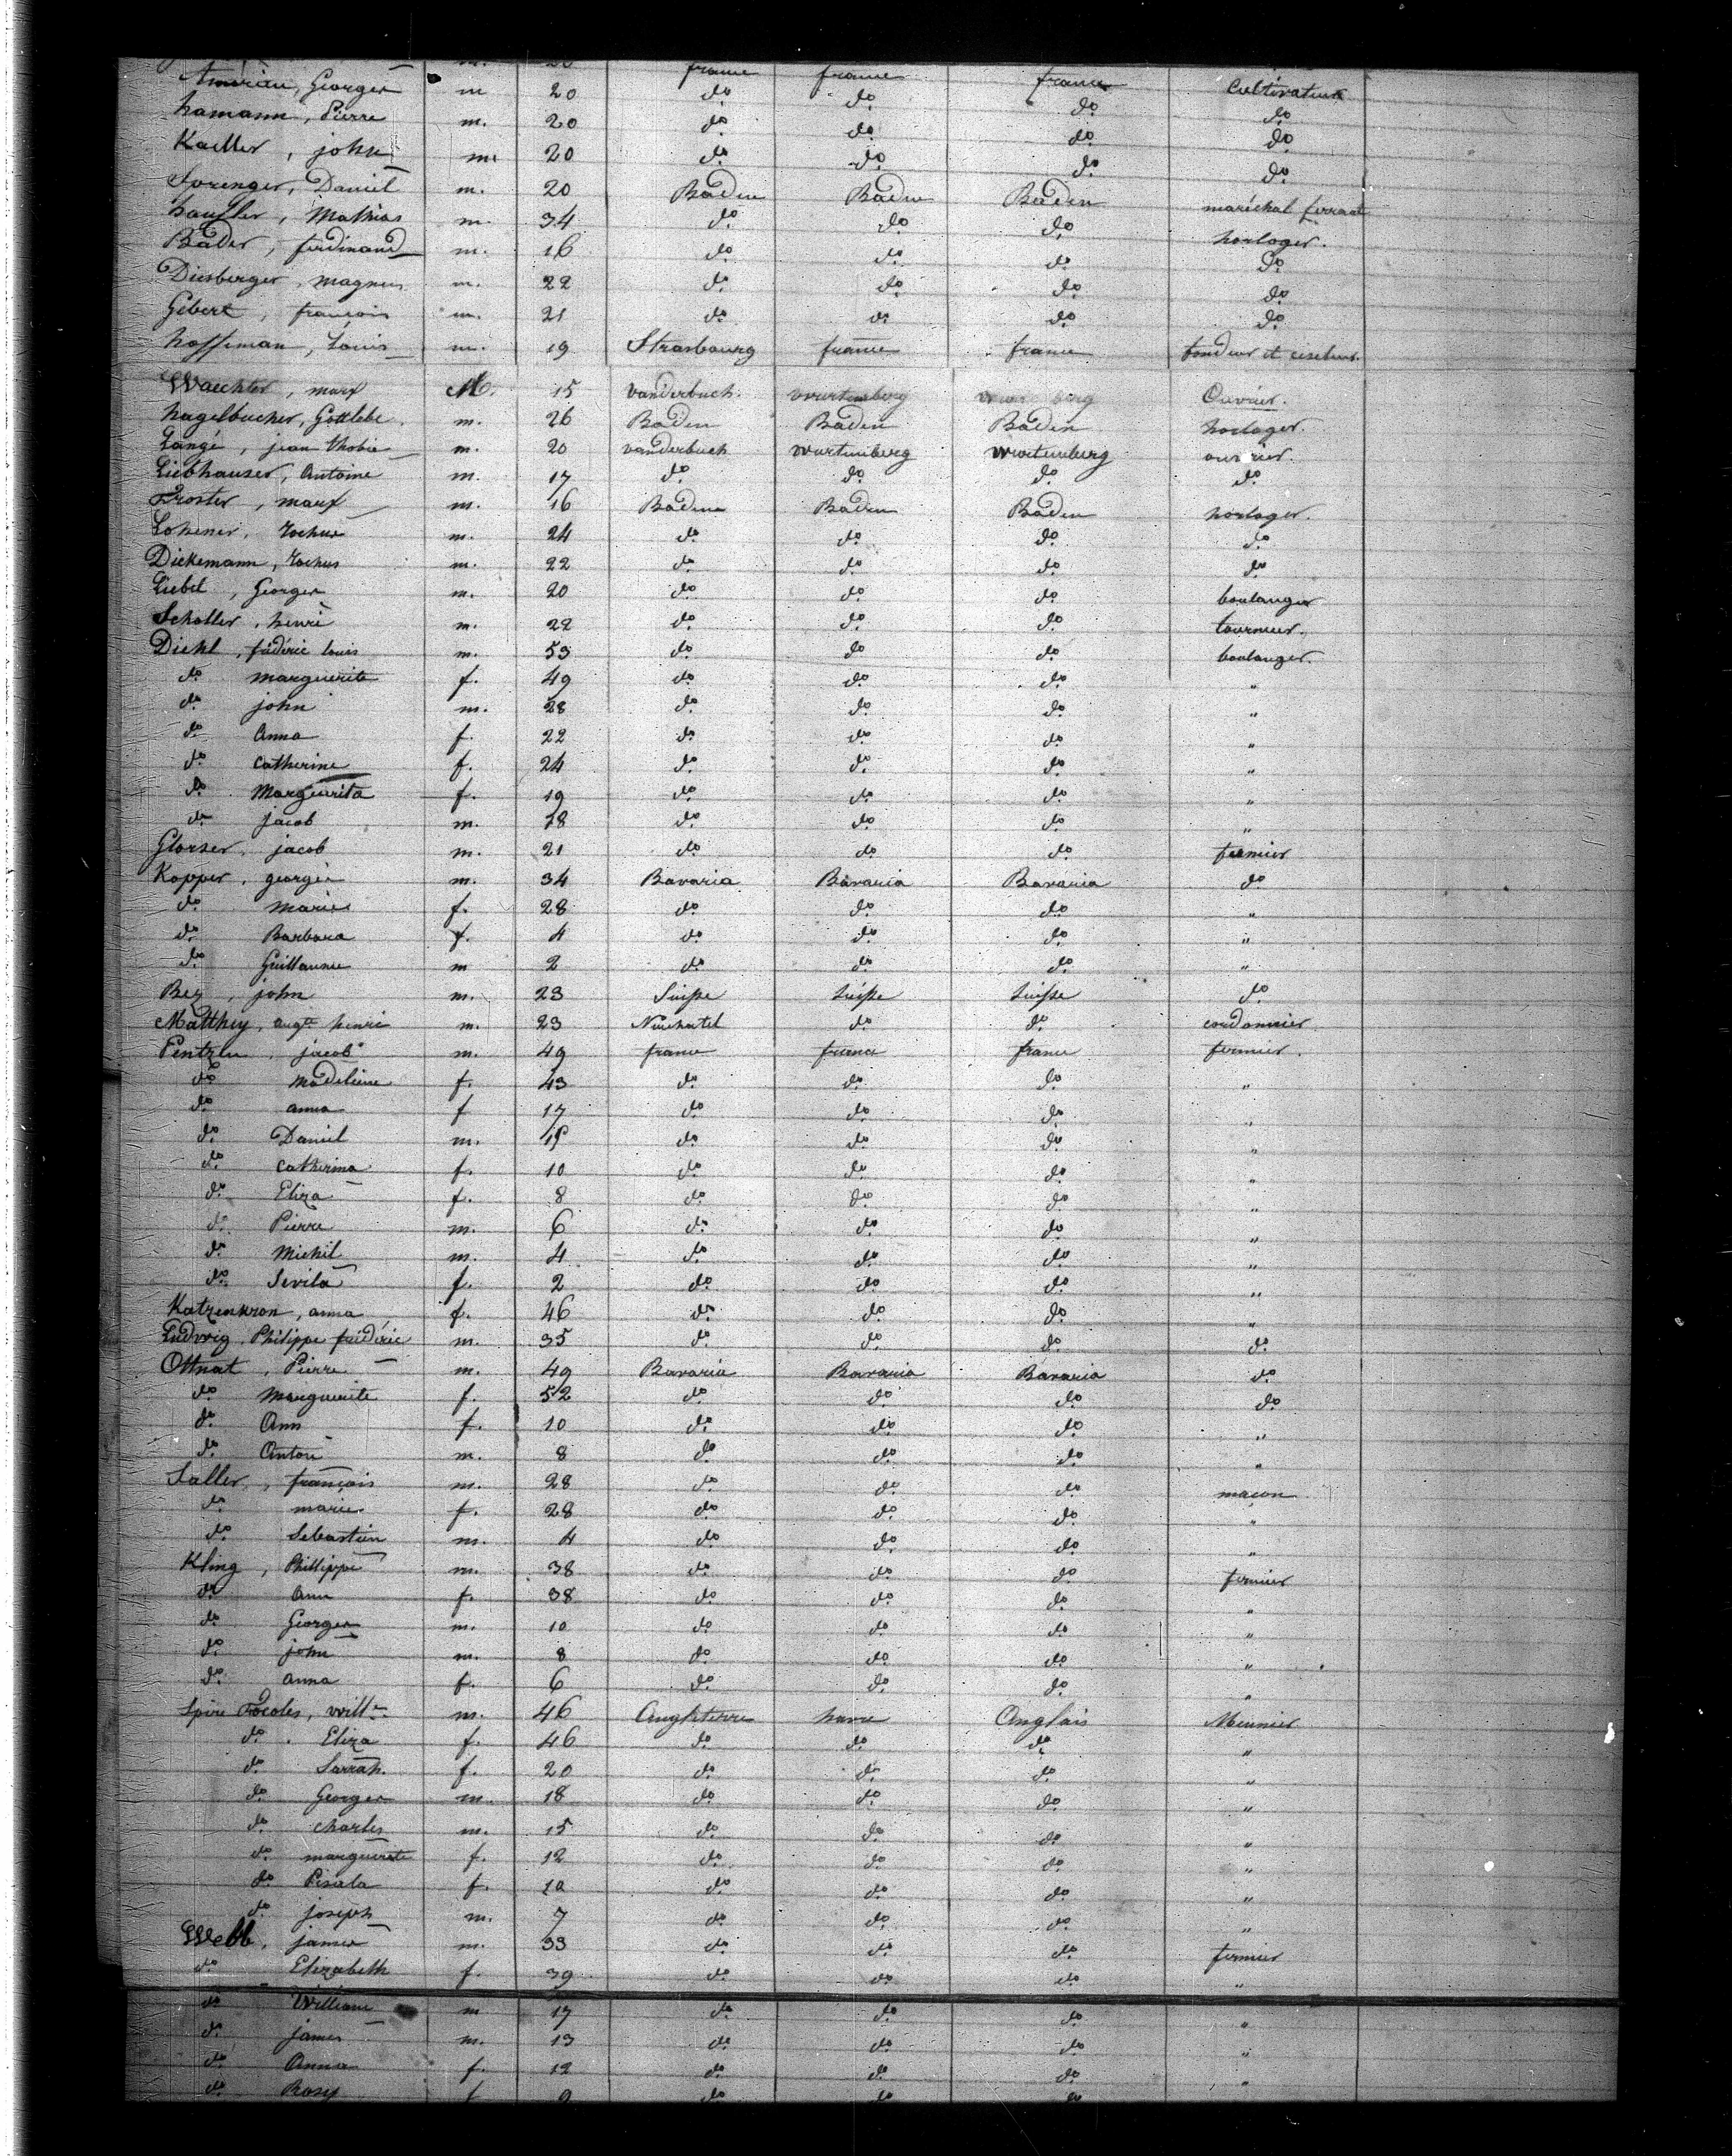 m. 20 france france france Cultivateur
Georges m 20 do do do do
hamann, Pierre m. 20 do do do do
Kaeller, john m. 20 do do do do
Sprenger, Daniel m. 20 Baden Baden Baden maréchal ferrant
Mathias m. 34 do do do horloger.
Bader, ferdinand m. 16 do do do do
Diesberger, magnus m. 22 do do do do
Gibert, françois m. 21 do do do do
hoffeman, Louis m. 19 Strasbourg france france fondeur et ciseleur.
Waechter, marx M. 15 vanderbuch. wurtemberg Ouvrier.
hagelbucher, Gottlebe m. 26 Baden Baden Baden horloger.
Langé, jean Thobie m. 20 vanderbuch wurtemberg wurtemberg ouvrier.
Liebhauser, Antoine m. 17 do do do do
Troster, marx m. 16 Baden Baden Baden horloger.
Lohener, Rochus m. 24 do do do do
Diekemann, Rochus m. 22 do do do do
Liebel, Georges m. 20 do do do boulanger
Scholler, henri m. 22 do do do tourneur.
Diehl, fréderic louis m. 53 do do do boulanger.
do marguerite f. 49 do do do "
do john m. 28 do do do "
do Anna f. 22 do do do "
do Catherine f. 24 do do do "
do Marguerita f. 19 do do do "
do jacob m. 18 do do do "
Glorser, jacob m. 21 do do do fermier
Kopper, georges m. 34 Bavaria Bavaria Bavaria do
do Marie f. 28 do do do "
do Barbara f. 4 do do do "
do Guillaume m 2 do do do "
Bez, john m. 23 Suisse Suisse Suisse do
Matthey, augte henri m. 23 Neuchatel do do cordonnier
Pentzler, jacob m. 49 france france france fermier.
do Madeleine f. 43 do do do "
do anna f 17 do do do "
do Daniel m. 15 do do do "
do Catherina f. 10 do do do "
do Eliza f. 8 do do do "
do Pierre m. 6 do do do "
do Michel m. 4 do do do "
do Sevila f. 2 do do do "
Katzenkron, anna f. 46 do do do "
Ludwig, Philippe fréderic m. 35 do do do do
Ottnat, Pierre m. 49 Bavaria Bavaria Bavaria do
do Marguerite f. 52 do do do do
do Ann f. 10 do do do "
do Anton m. 8 do do do "
Saller, françois m. 28 do do do maçon
do marie f. 28 do do do "
do Sebastien m. 4 do do do "
Kling, Phillippe m. 38 do do do fermier
do Ann f. 38 do do do "
do Georges m. 10 do do do "
do john m. 8 do do do "
do anna f. 6 do do do "
Spire m. 46 Angleterre havre Anglais Meunier
do Eliza f. 46 do do do "
do Sarrah. f. 20 do do do "
do Georges m. 18 do do do "
do Charles m. 15 do do do "
do marguerite f. 12 do do do "
do f. 10 do do do "
do joseph m. 7 do do do "
Webb, james m. 33 do do do fermier
do Elizabeth f. 39 do do do "
do William m 17 do do do "
do james m. 13 do do do "
do Anna f. 12 do do do "
do Rosy f 9 do do do